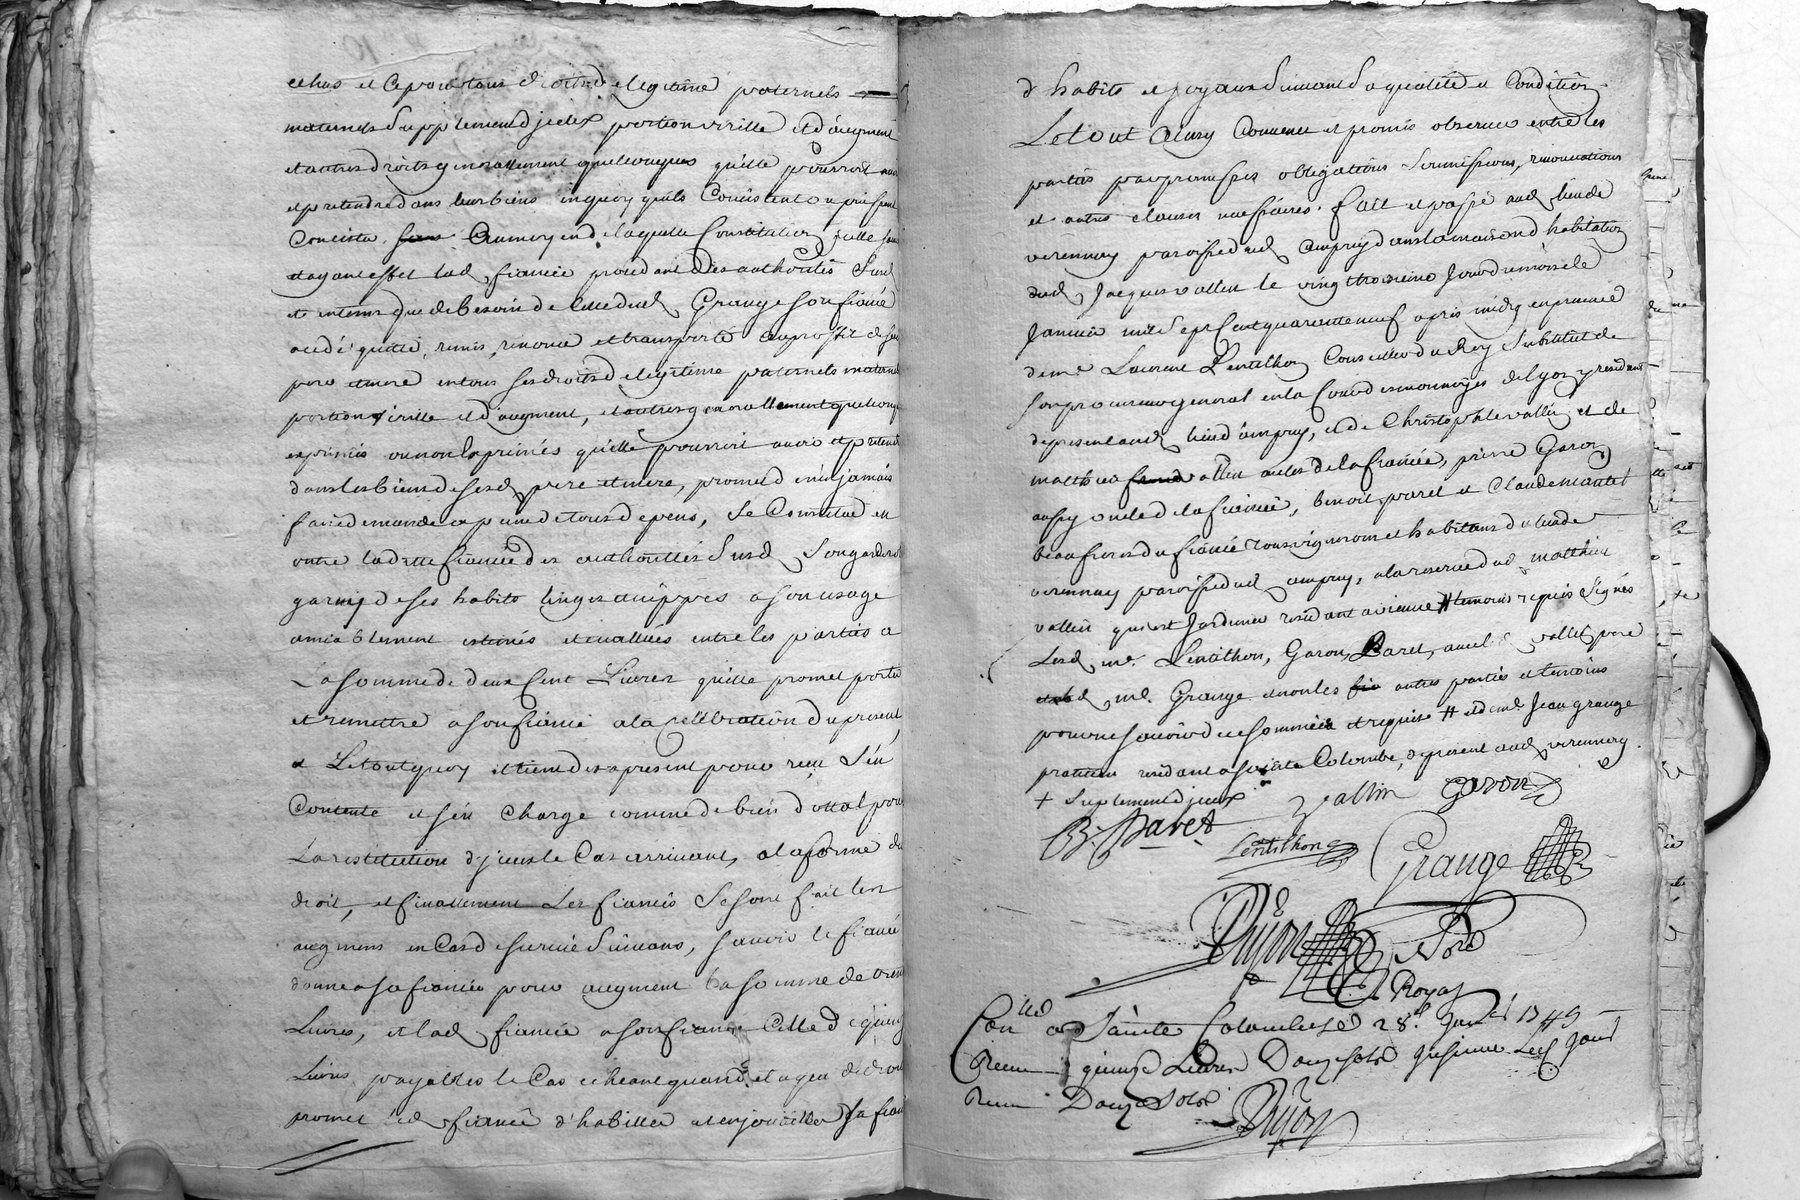 echus et ce pour tous droits de legitime paternels
maternels supplement d'iceux portion virille et d'augment
et autres droits generallement quelconques qu'elle pourroit avoir
et pretendre dans leurs biens en quoy qu'ils consistent ou puissent
consister. Au moyen de laquelle constitution
et ayant effet lad fiancée procedant des authorités susd
et en tems que de besoin de celle dud Grange son fiancé
a cedé, quitté, remis, renoncé et transporté au profit de ses
pere et mere en tous ses droits de legitime paternels maternels
portion virille et d'augment, et autres generallement quelconques
exprimés ou non exprimés qu'elle pourroit avoir et pretendre
dans les biens de sesd pere et mere, promet de n'en jamais
faire demande a peine de tous depens, se constitue en
outre lad fiancée des authorittés susd son garderobe
garny de ses habits linges nippes a son usage
amiablement estimés et evallués entre les parties a
la somme de deux cent livres qu'elle promet porter
et remettre a son fiancé a la celebration du present
et le tout quoy il tient des a present pour recu s'en
contente et s'en charge comme de bien dottal pour
la restitution d'iceux le cas arrivant, a la forme du
droit, et finallement les fiancés se sont fait les
augmens en cas de survie suivans, scavoir le fiancé
donne a sa fiancée pour augment la somme de trente
livres, et lad fiancée a son fiancé celle de quinze
livres payables le cas echeant quand et a qui de droit
promet led fiancé d'habiller et enjoüailler sa fiancée
d'habits et joyaux suivant sa qualité et condition.
Le tout ainsy convenu et promis observer entre les
parties par promesses obligations soumissions, renonciations
et autres clauses necessaires. fait et passé aud lieu de
verennay paroisse dud ampuy dans la maison d'habitation
dud Jacques vallin le vingt troisieme jour du mois de
Janvier mil sept cent quarante neuf apres midy en presence
de me. Laurent Lentilhon Conseiller du Roy substitut de
son procureur general en la Cour des monnoyes de Lyon y residant
de present aud lieu d'ampuy, et de Christophle vallin et de
mathieu vallin oncles de la fiancée, pierre Garon
aussy oncle de la fiancée, benoit paret et Claude mantel
beaufreres du fiancé tous vignerons et habitans du lieu de
verennay paroisse dud ampuy, a la reserve dud matthieu
vallin qui est jardinier residant a vienne # temoins requis signés
lesd me. Lentilhon, Garon, Paret, avec led vallet pere
me. Grange et non les autres parties et temoins
pour ne scavoir de ce sommées et requise # et de me. Jean grange
praticien residant a sainte Colombe, de present aud verennay.
+ suplement d'iceux vallin garon
B. Paret Lentilhon Grange
Dujon
Royal
Con.lle a Sainte Colombe le 28e. Janvier 1749
Recu quinze livres douze sols led jour
Recu douze sols
Dujon